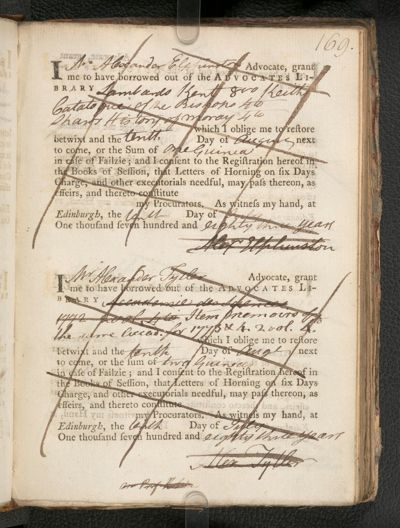 169.
I Mr Alexander Elphinston Advocate, grant
me to have borrowed out of the ADVOCATES LI-
BRARY Lambards Kent 8vo Keith
Catalogue of the Bishops 4to
Shaws History of Moray 4to
which I oblige me to restore
betwixt and the tenth Day of August next
to come, or the Sum of One Guinea
in case of Failzie; and I consent to the Registration hereof in
the Books of Session, that Letters of Horning on six Days
Charge, and other executorials needful, may pass thereon, as
effeirs, and thereto constitute
my Procurators. As witness my hand, at
Edinburgh, the Day of
One thousand seven hundred and eighty three years
Alex Elphinston
I Mr Alexander Tytler Advocate, grant
me to have borrowed out of the ADVOCATES LI-
BRARY des Sciences
1772 4to Item memoirs of
the same for 1773 2 vol. 4.
which I oblige me to restore
betwixt and the tenth Day of next
to come, or the sum of two Guineas
in case of Failzie; and I consent to the Registration hereof in
the Books of Session, that Letters of Horning on six Days
Charge, and other executorials needful, may pass thereon, as
effeirs, and thereto constitute
my Procurators. As witness my hand, at
Edinburgh, the Day of July
One thousand seven hundred and eighty three years
Alex Tytler